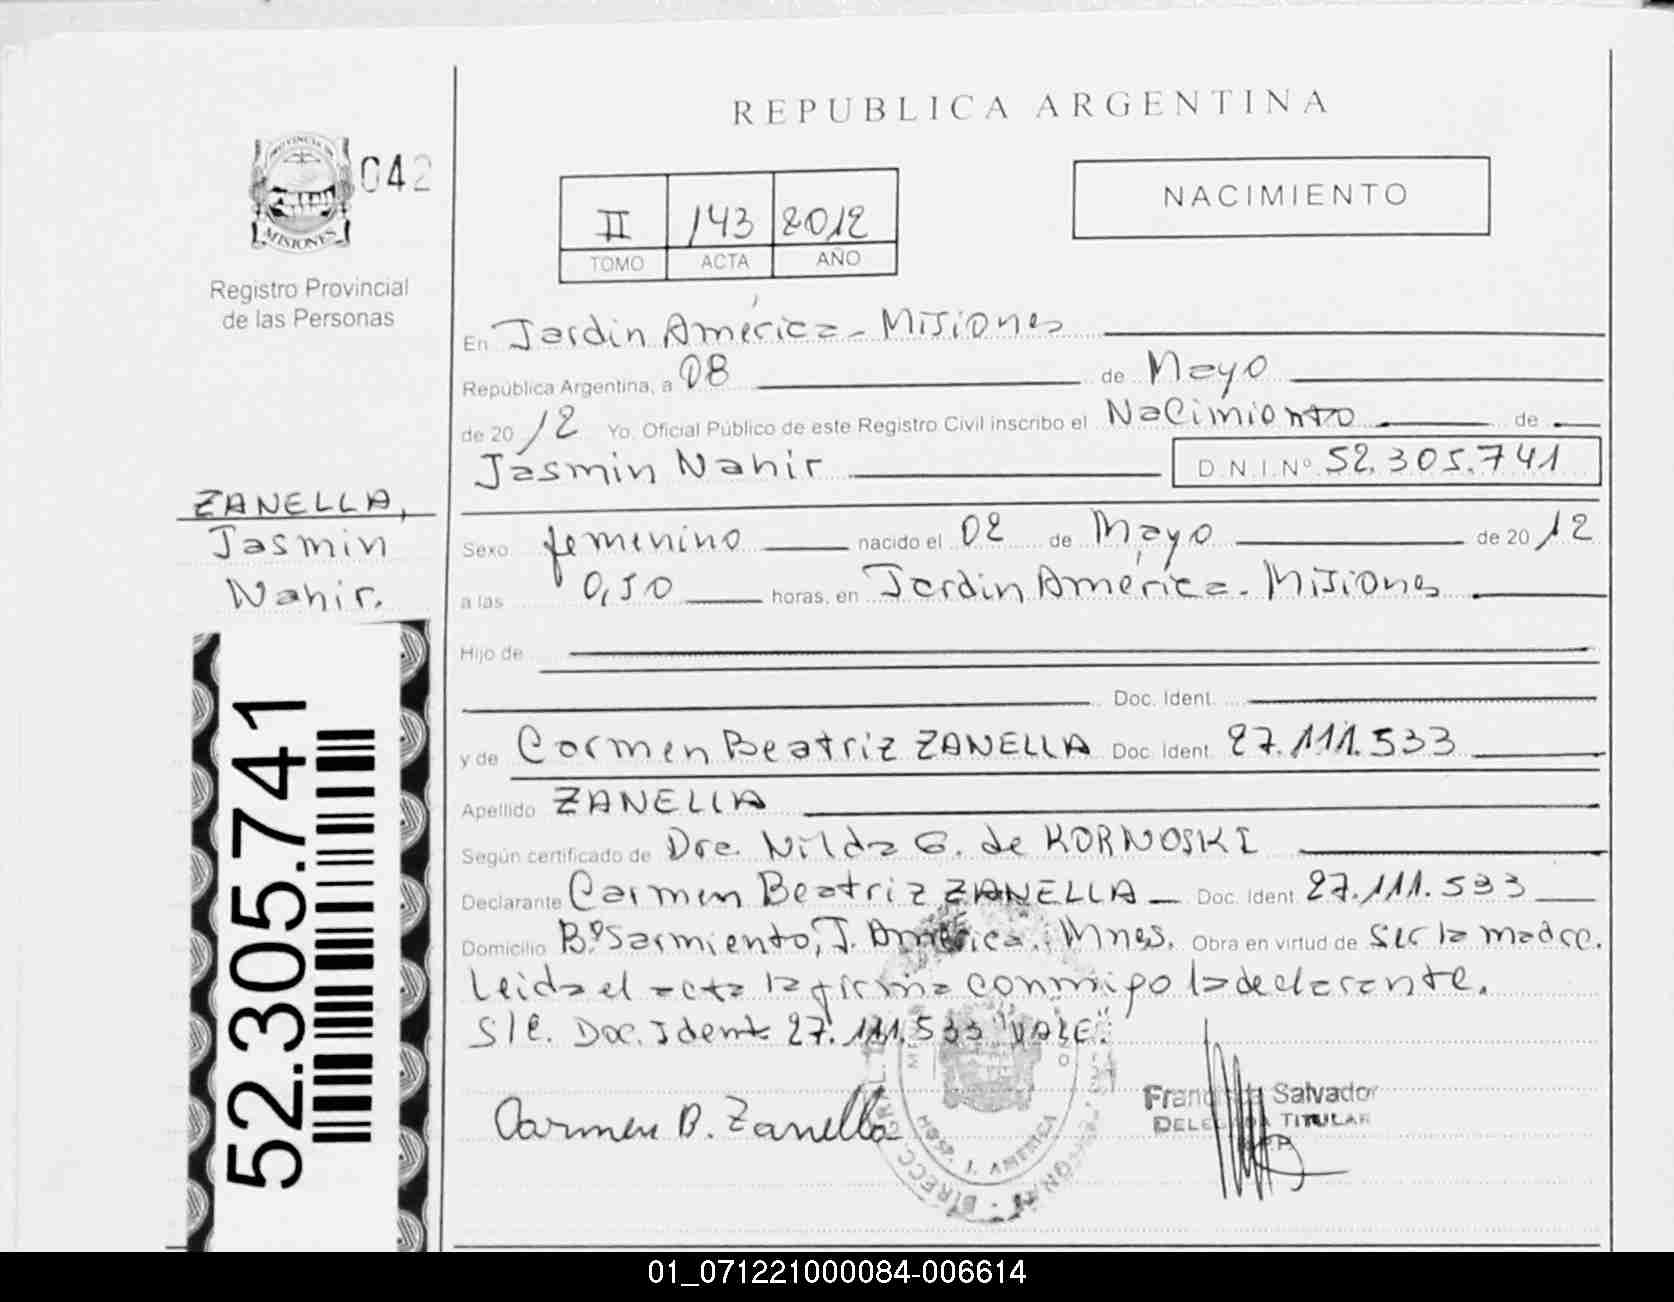 REPUBLICA ARGENTINA
PROVINCIA DE
MISIONES
042
Registro Provincial
de las Personas
II 143 2012
TOMO ACTA AÑO
NACIMIENTO
En Jardin América - Misiones
República Argentina, a 08 de Mayo
de 20 12 Yo, Oficial Público de este Registro Civil inscribo el Nacimiento de
Jasmin Nahir D.N.I.Nº 52.305.741
ZANELLA,
Jasmin
Nahir.
Sexo femenino nacido el 02 de Mayo de 20 12
a las 0,50 horas, en Jardin América - Misiones
Hijo de
Doc. Ident.
y de Carmen Beatriz ZANELLA Doc. Ident. 27.111.533
Apellido ZANELLA
Según certificado de Dra. Nilda G. de KORNOSKI
Declarante Carmen Beatriz ZANELLA Doc. Ident. 27.111.533
Domicilio Bº Sarmiento, J. América. Mnes. Obra en virtud de ser la madre.
Leida el acta la firma conmigo la declarante.
S/C. Doc. Ident 27.111.533 "VALE".
Carmen B. Zanella
HOSP. J. AMERICA
DIRECC. GRAL. D
Salvador
TITULAR
52.305.741
01_071221000084-006614